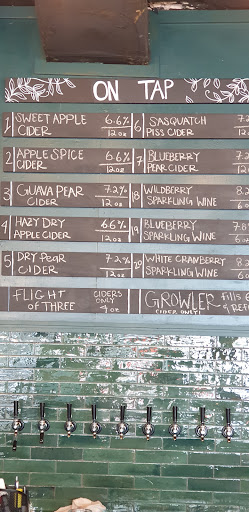 ON TAP
1 SWEET APPLE 6.6%
CIDER 12oz
2 APPLE SPICE 6.6%
CIDER 12oz
3 GUAVA PEAR 7.2%
CIDER 12oz
4 HAZY DRY 6.6%
APPLE CIDER 12oz
5 DRY PEAR 7.2%
CIDER 12oz
FLIGHT CIDERS
OF THREE ONLY
4oz
6 SASQUATCH
PISS CIDER 12
7 BLUEBERRY
PEAR CIDER 12
18 WILDBERRY
SPARKLING WINE
19 BLUEBERRY
SPARKLING WINE
20 WHITE CRANBERRY
SPARKLING WINE
GROWLER fills
CIDER ONLY!